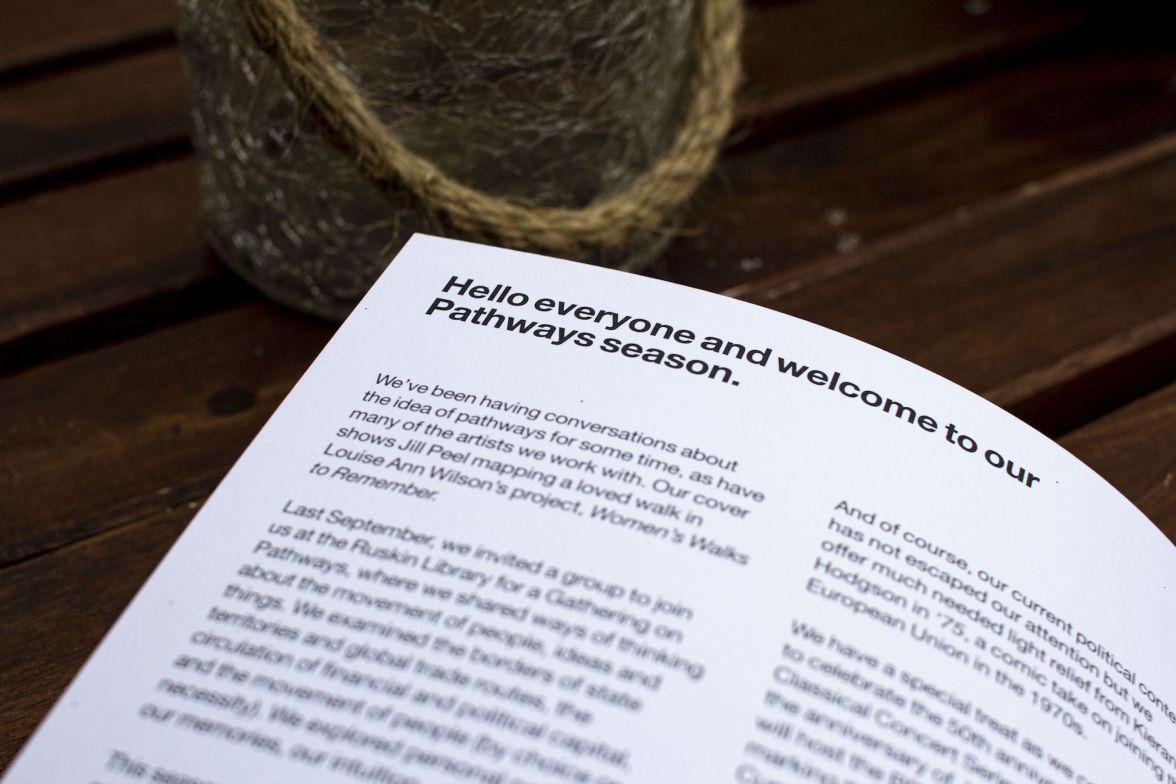 Hello everyone and welcome to our
Pathways season.
We've been having conversations about
the idea of pathways for some time, as have
many of the artists we work with. Our cover
shows Jill Peel mapping a loved walk in
Louise Ann Wilson's project, Women's Walks
to Remember.
Last September, we invited a group to join
us at the Ruskin Library for a Gathering on
Pathways, where we shared ways of thinking
about the movement of people, ideas and
things. We examined the borders of state
territories and global trade routes, the
circulation of financial and political capital,
and the movement of people (by choice or
necessity). We explored
our memories, our intuition
This
And of course, our current political
has not escaped our attention but we
offer much needed light relief from Kieran
Hodgson in '75, a comic take on joining
European Union in the 1970s.
We have a special treat as we
to celebrate the 50th
Classical Concert
the anniversary of
will host the
marking